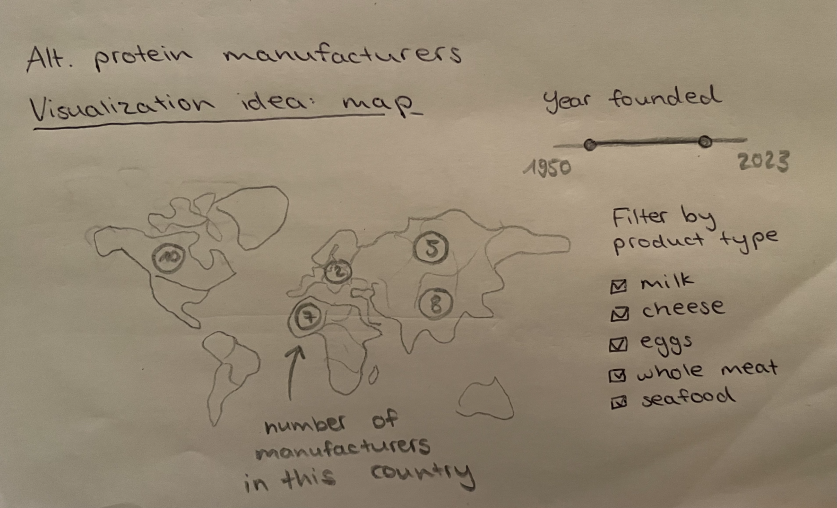 Alt. protein manufacturers
Visualization idea: map
Year founded
1950
2023
10
2
5
7
8
number of
manufacturers
in this country
Filter by
product type
milk
cheese
eggs
whole meat
seafood